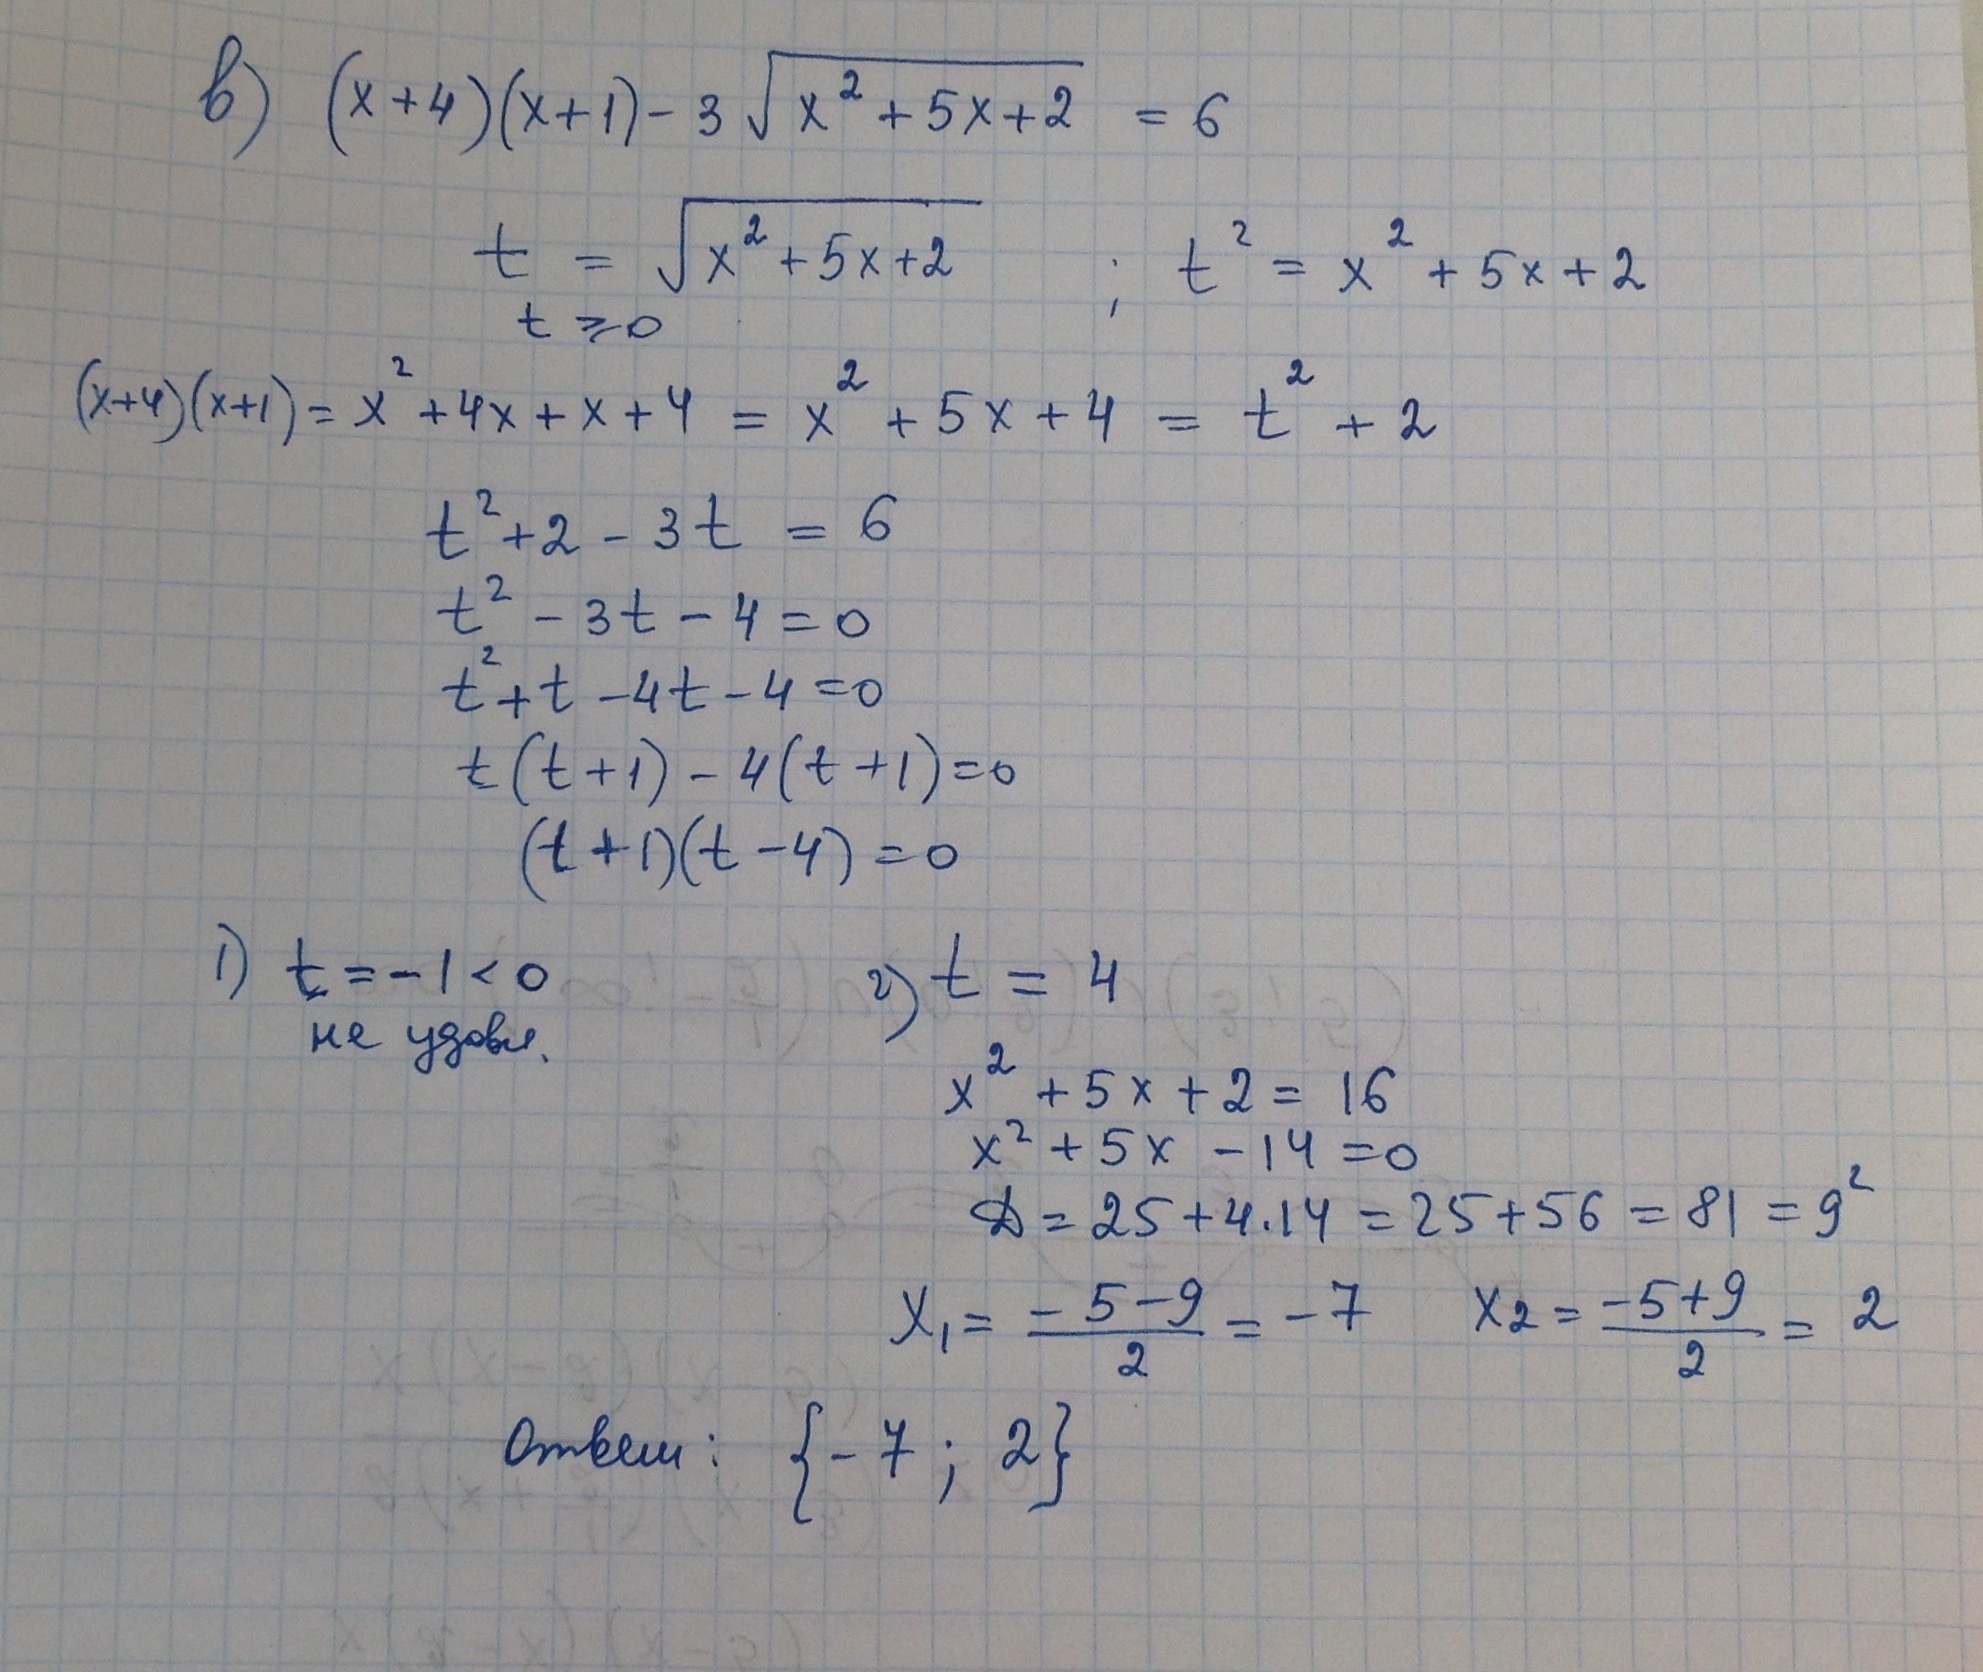 в) (x+4)(x+1) - 3√(x² + 5x + 2) = 6
t = √(x² + 5x + 2) ; t² = x² + 5x + 2
t ⩾ 0
(x+4)(x+1) = x² + 4x + x + 4 = x² + 5x + 4 = t² + 2
t² + 2 - 3t = 6
t² - 3t - 4 = 0
t² + t - 4t - 4 = 0
t(t+1) - 4(t+1) = 0
(t+1)(t-4) = 0
1) t = -1 < 0 2) t = 4
не удовл.
x² + 5x + 2 = 16
x² + 5x - 14 = 0
D = 25 + 4·14 = 25 + 56 = 81 = 9²
x₁ = (-5-9)/2 = -7 x₂ = (-5+9)/2 = 2
Ответ: {-7; 2}